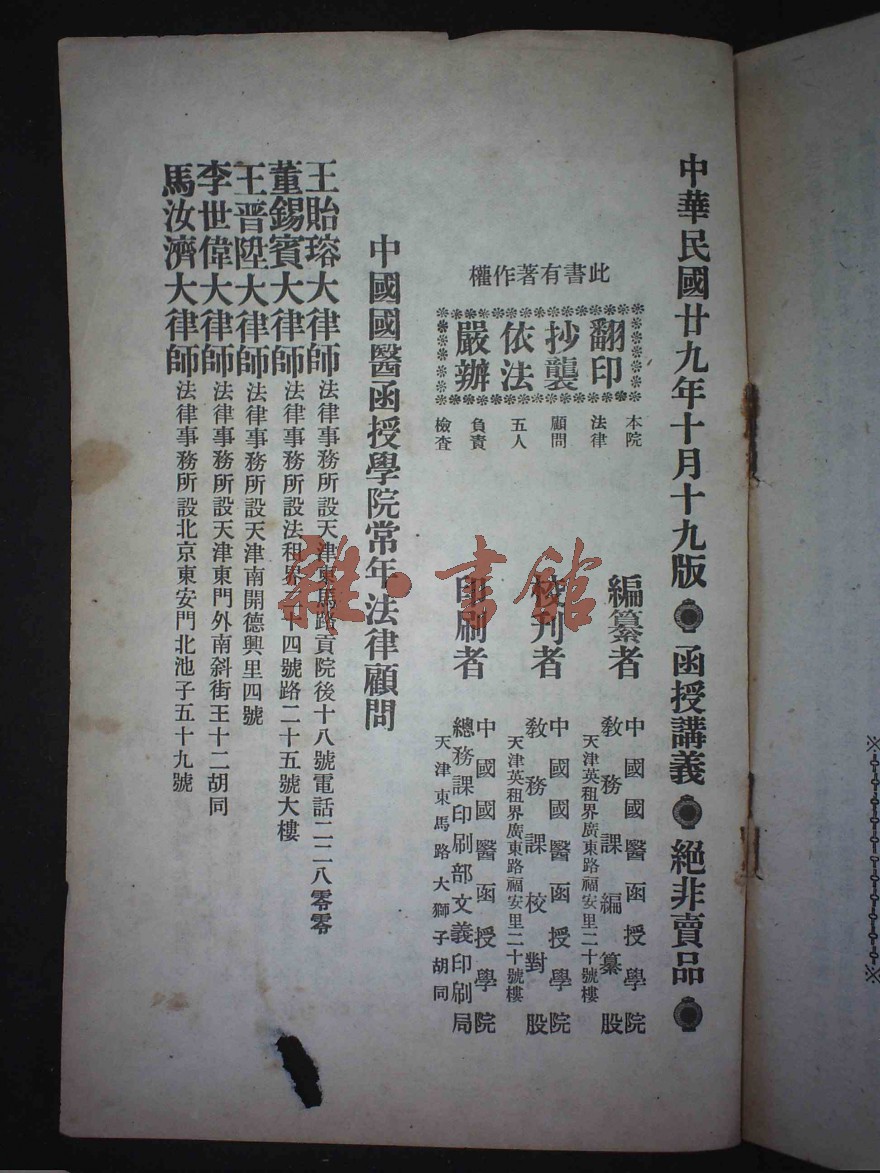 中華民國廿九年十月十九版 函授講義 絕非賣品
此書有著作權
翻印
抄襲
依法
嚴辦
本院
法律
顧問
五人
負責
檢查
編纂者
中國國醫函授學院
教務課編纂股
天津英租界廣東路福安里二十號樓
校刋者
中國國醫函授學院
教務課校對股
天津英租界廣東路福安里二十號樓
印刷者
中國國醫函授學院
總務課印刷部文義印刷局
天津東馬路大獅子胡同
中國國醫函授學院常年法律顧問
王貽瑢大律師 法律事務所設天津東馬路貢院後十八號電話二二八零零
董錫賓大律師 法律事務所設法租界二十四號路二十五號大樓
王晋陞大律師 法律事務所設天津南開德興里四號
李世偉大律師 法律事務所設天津東門外南斜街王十二胡同
馬汝濟大律師 法律事務所設北京東安門北池子五十九號
雜·書館